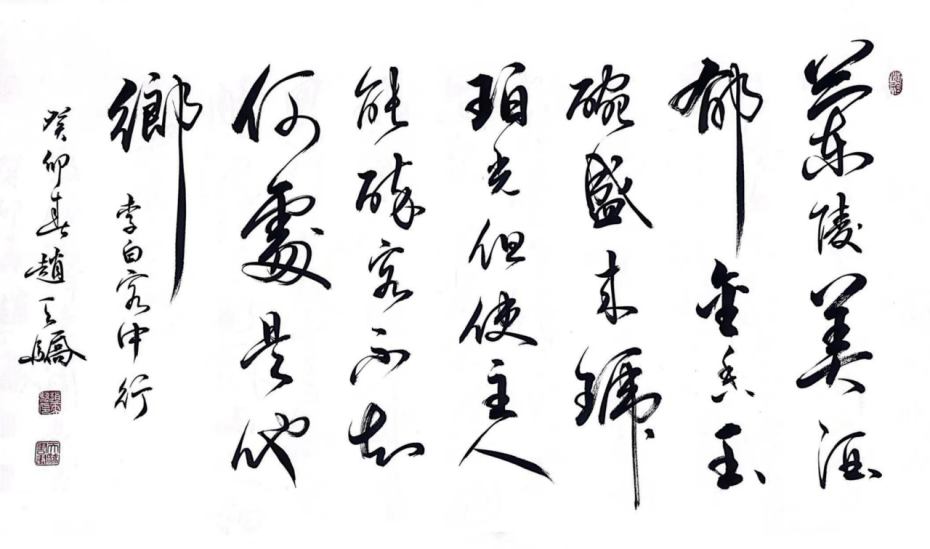 蘭陵美酒
郁金香玉
碗盛来琥
珀光但使主人
能醉客不知
何處是他
鄉
李白客中行
癸卯春趙天驕